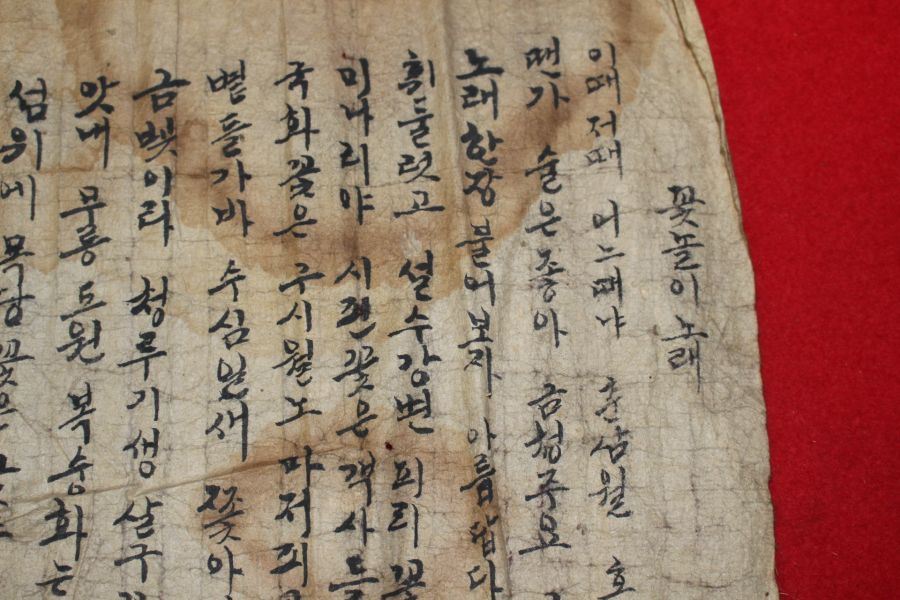 꽃놀이 노래
이때 저때 어느때냐 춘삼월 호
땐가 술은 종아 금청주요
노래한장 불어보자 아름답다
휘둘럿고 설수강변 피리꽃
미나리야 시젼꽃은 객사들
국화꽃은 구시월노 마저피
볓들가바 수심일새 꽃아
금볓이라 청루기생 살구
앗내 무릉도원 복숭화는
섬위에 목단꽃은